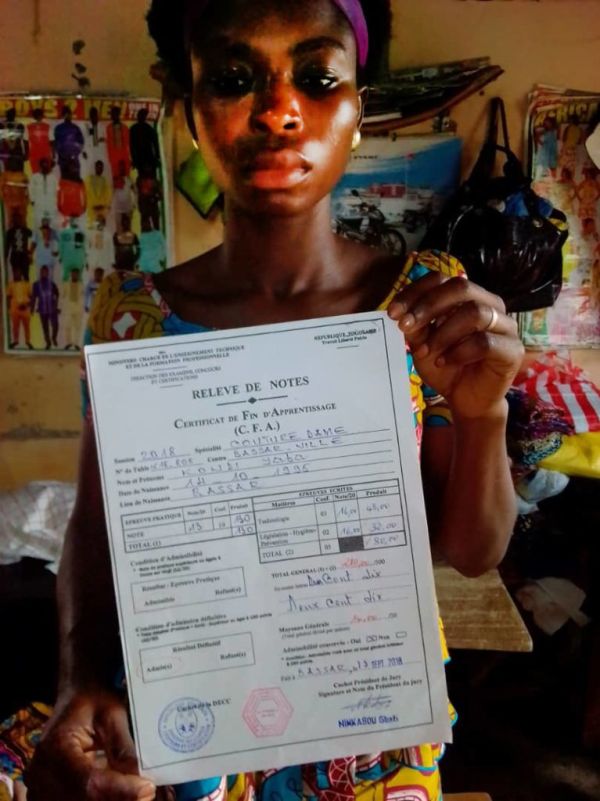 MINISTERE CHARGE DE L'ENSEIGNEMENT TECHNIQUE
ET DE LA FORMATION PROFESSIONNELLE
DIRECTION DES EXAMENS, CONCOURS
ET CERTIFICATIONS
REPUBLIQUE TOGOLAISE
Travail Liberté Patrie
RELEVE DE NOTES
CERTIFICAT DE FIN D'APPRENTISSAGE
(C. F. A.)
Session 2018 Spécialité COUTURE DAME
N° de Table Centre BASSAR VILLE
Nom et Prénoms KONDI Yaba
Date de Naissance 14 10 1996
Lieu de Naissance BASSAR
EPREUVE PRATIQUE Note/20 Coef Produit
NOTE 13 10 130
TOTAL (1) 130
EPREUVES ECRITES
Matières Coef. Note/20 Produit
Technologie 03 16,00 48,00
Législation - Hygiène- Prévention 02 16,00 32,00
TOTAL (2) 05 80,00
Condition d'Admissibilité
Résultat - Epreuve Pratique
Admissible Refusé(e)
TOTAL GENERAL (1) + (2) 210,00 /300
Deux Cent dix
Deux Cent dix
Condition d'admission définitive
Moyenne Générale
Résultat Définitif
Admis(e) Refusé(e)
Admissibilité conservée - Oui Non
Fait à BASSAR, le SEPT. 2018
Cachet de la DECC
Cachet Président de Jury
Signature et Nom du Président du jury
NIMKABOU Gbati